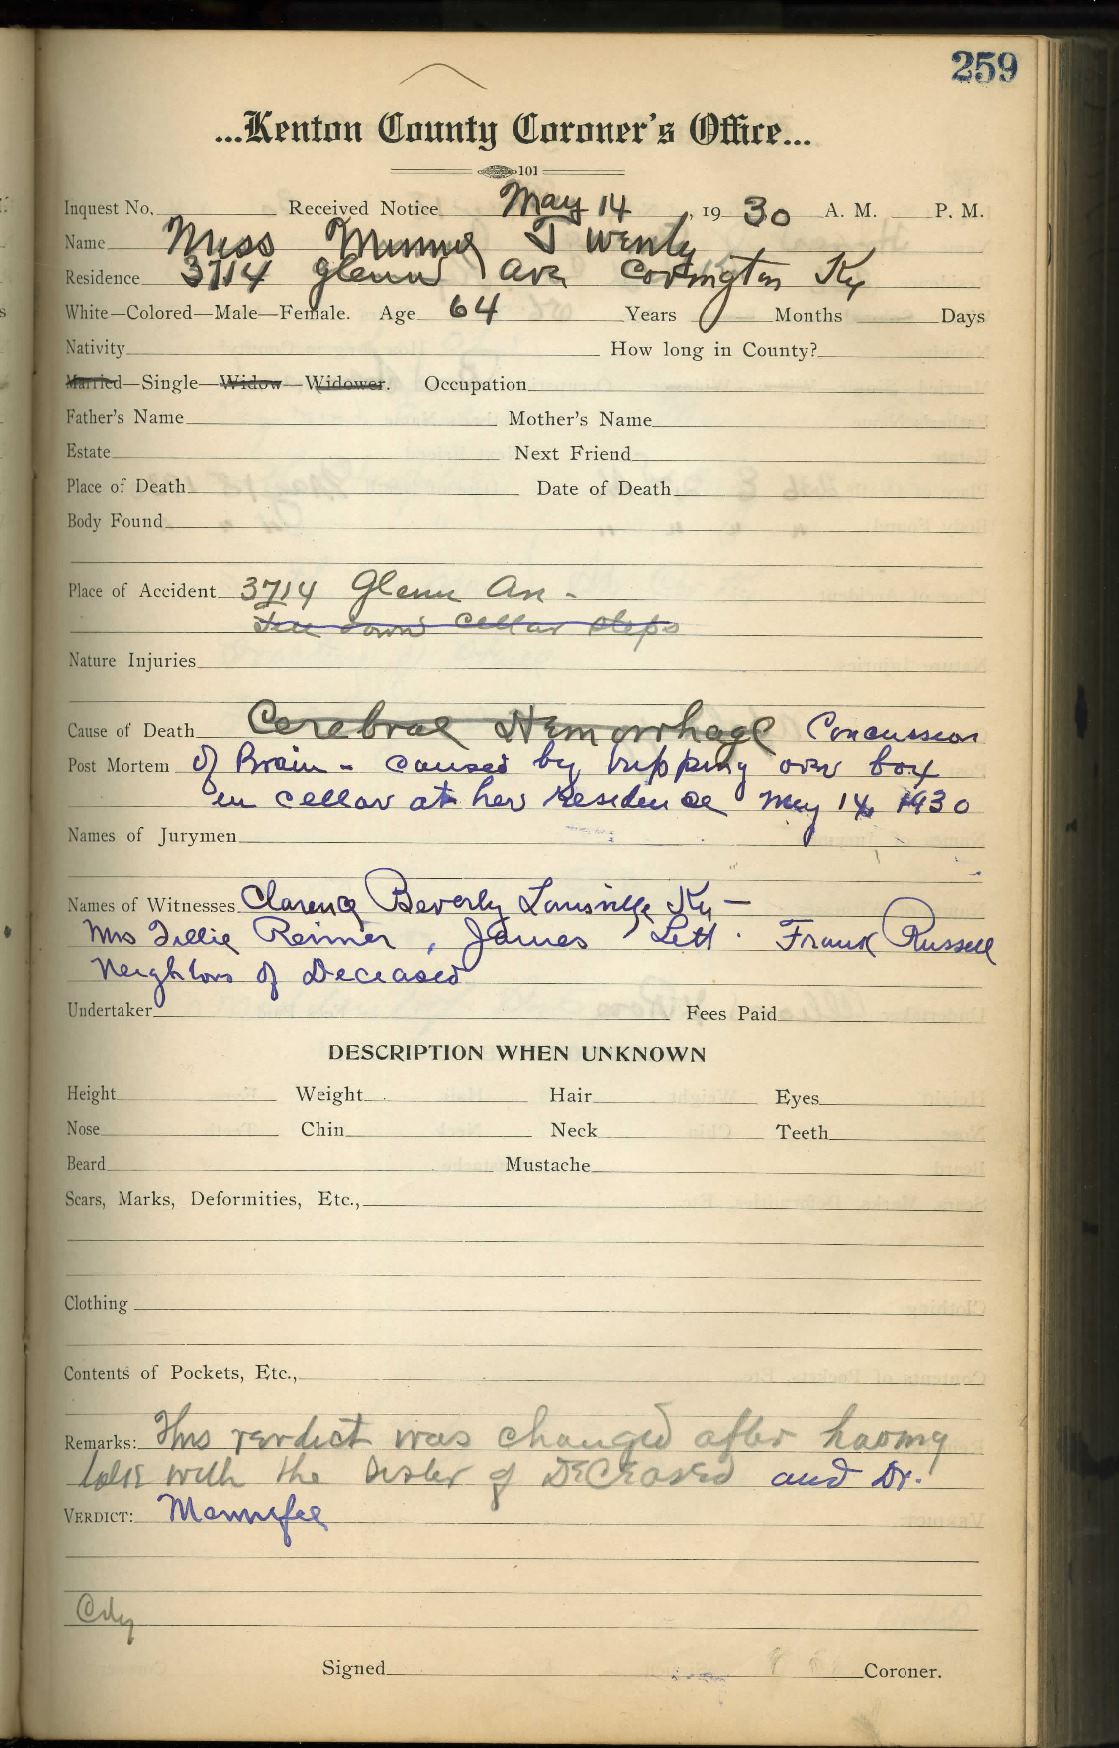 259
...Kenton County Coroner's Office...
101
Inquest No. Received Notice May 14, 1930 A. M. P. M.
Name Miss Minnie T Wenly
Residence 3714 Glenn Ave Covington Ky
White—Colored—Male—Female. Age 64 Years Months Days
Nativity How long in County?
Married—Single—Widow—Widower. Occupation
Father's Name Mother's Name
Estate Next Friend
Place of Death Date of Death
Body Found
Place of Accident 3714 Glenn Av -
Fell down cellar steps
Nature Injuries
Cause of Death Cerebral Hemorrhage Concussion
Post Mortem of Brain - caused by tripping over box
in cellar at her Residence May 14, 1930
Names of Jurymen
Names of Witnesses Clarence Beverly Louisville Ky -
Mrs Tillie Reimer, James Lett. Frank Russell
Neighbors of Deceased
Undertaker Fees Paid
DESCRIPTION WHEN UNKNOWN
Height Weight Hair Eyes
Nose Chin Neck Teeth
Beard Mustache
Scars, Marks, Deformities, Etc.,
Clothing
Contents of Pockets, Etc.,
Remarks: This verdict was changed after having
talk with the sister of Deceased and Dr.
VERDICT: Mennifee
City
Signed Coroner.